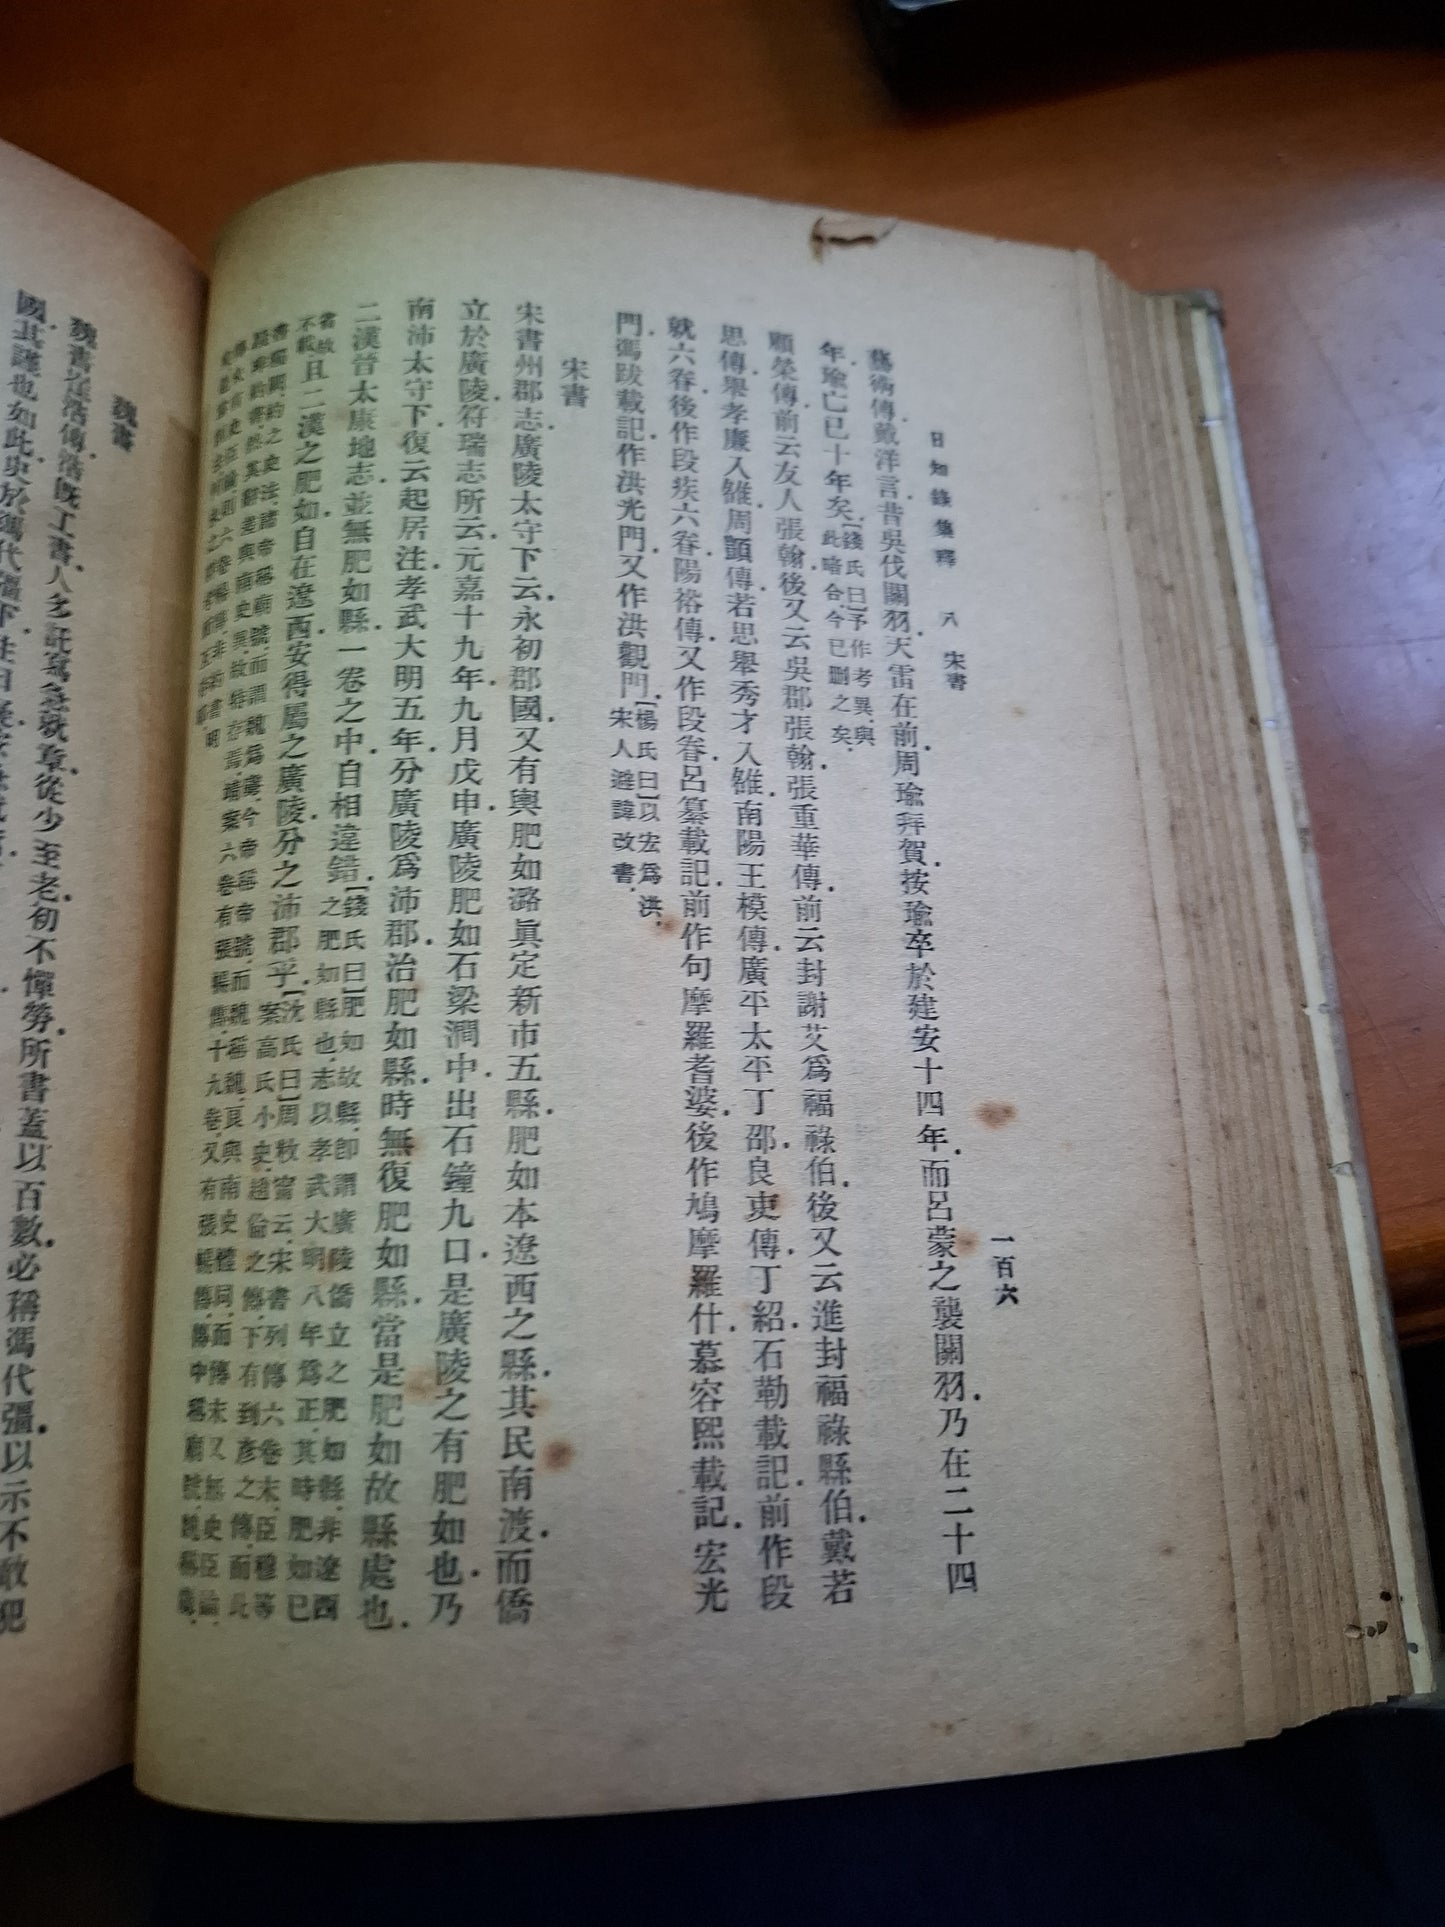 日知錄集釋 八 宋書 一百六
藝術傳戴洋言昔吳伐關羽天雷在前周瑜拜賀按瑜卒於建安十四年而呂蒙之襲關羽乃在二十四
年瑜亡已十年矣【錢氏曰】予作考異與
此略合今已刪之矣
顧榮傳前云友人張翰後又云吳郡張翰張重華傳前云封謝艾爲福祿伯後又云進封福祿縣伯戴若
思傳舉孝廉入雒周顗傳若思舉秀才入雒南陽王模傳廣平太平丁邵良吏傳丁紹石勒載記前作段
就六眷後作段疾六眷陽裕傳又作段眷呂纂載記前作句摩羅耆婆後作鳩摩羅什慕容熙載記宏光
門馮跋載記作洪光門又作洪觀門【楊氏曰】以宏爲洪
宋人避諱改書
宋書
宋書州郡志廣陵太守下云永初郡國又有輿肥如潞眞定新市五縣肥如本遼西之縣其民南渡而僑
立於廣陵符瑞志所云元嘉十九年九月戊申廣陵肥如石梁澗中出石鐘九口是廣陵之有肥如也乃
南沛太守下復云起居注孝武大明五年分廣陵爲沛郡治肥如縣時無復肥如縣當是肥如故縣處也
二漢晉太康地志並無肥如縣一卷之中自相違錯【錢氏曰】肥如故縣卽謂廣陵僑立之肥如縣非遼西
之肥如縣也志以孝武大明八年爲正其時肥如已
省故
不載且二漢之肥如自在遼西安得屬之廣陵分之沛郡乎【沈氏曰】周敉甯云宋書列傳六卷末臣穆等
案高氏小史趙倫之傳下有到彥之傳而此
書獨闕約之史法諸帝稱廟號而謂魏爲虜今帝稱帝號而魏稱魏良與南史體同而傳末又無史臣論
魏書
魏書崔浩傳浩旣工書人多託寫急就章從少至老初不憚勞所書蓋以百數必稱馮代彊以示不敢犯
國其謹也如此史於馮代彊下